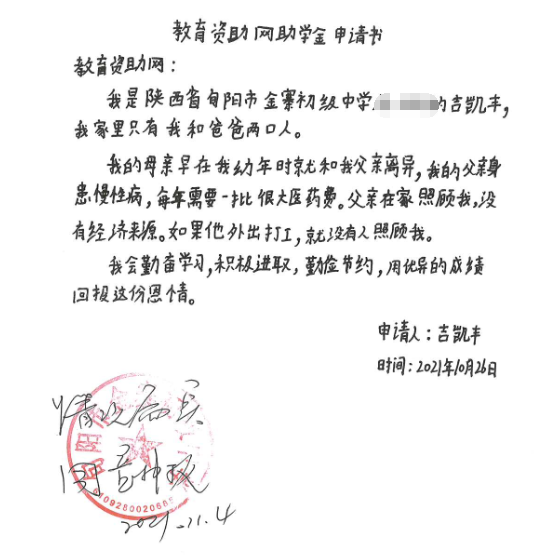 教育资助网助学金申请书
教育资助网：
我是陕西省旬阳市金寨初级中学 的吉凯丰，
我家里只有我和爸爸两口人。
我的母亲早在我幼年时就和我父亲离异，我的父亲身
患慢性病，每年需要一批很大医药费。父亲在家照顾我，没
有经济来源。如果他外出打工，就没有人照顾我。
我会勤奋学习，积极进取，勤俭节约，用优异的成绩
回报这份恩情。
申请人：吉凯丰
时间：2021年10月26日
情况属实
同意申报
2021.11.4